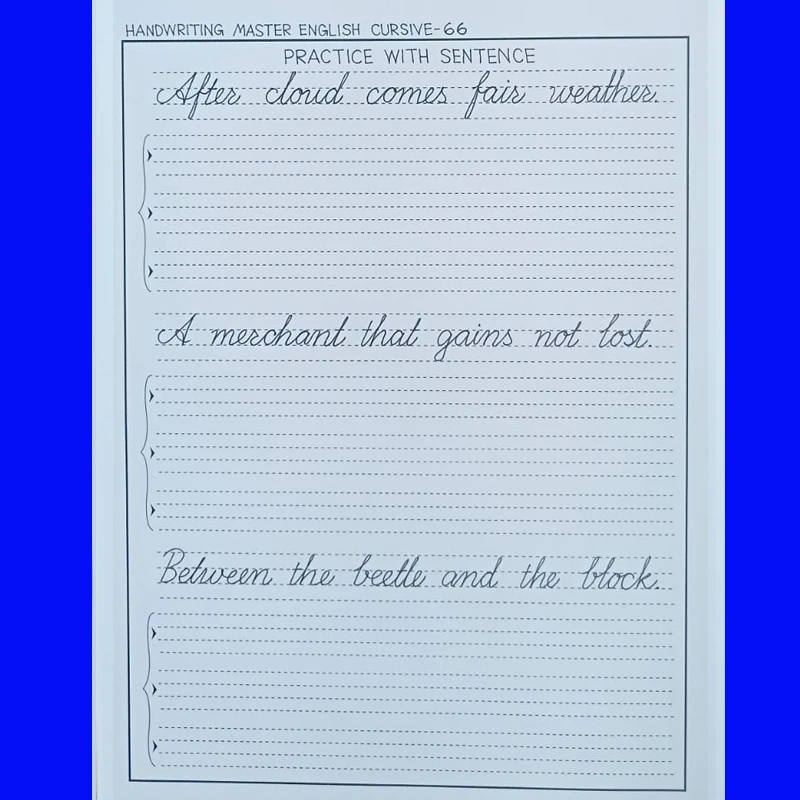 HANDWRITING MASTER ENGLISH CURSIVE-66
PRACTICE WITH SENTENCE
After cloud comes fair weather.
A merchant that gains not lost.
Between the beetle and the block.